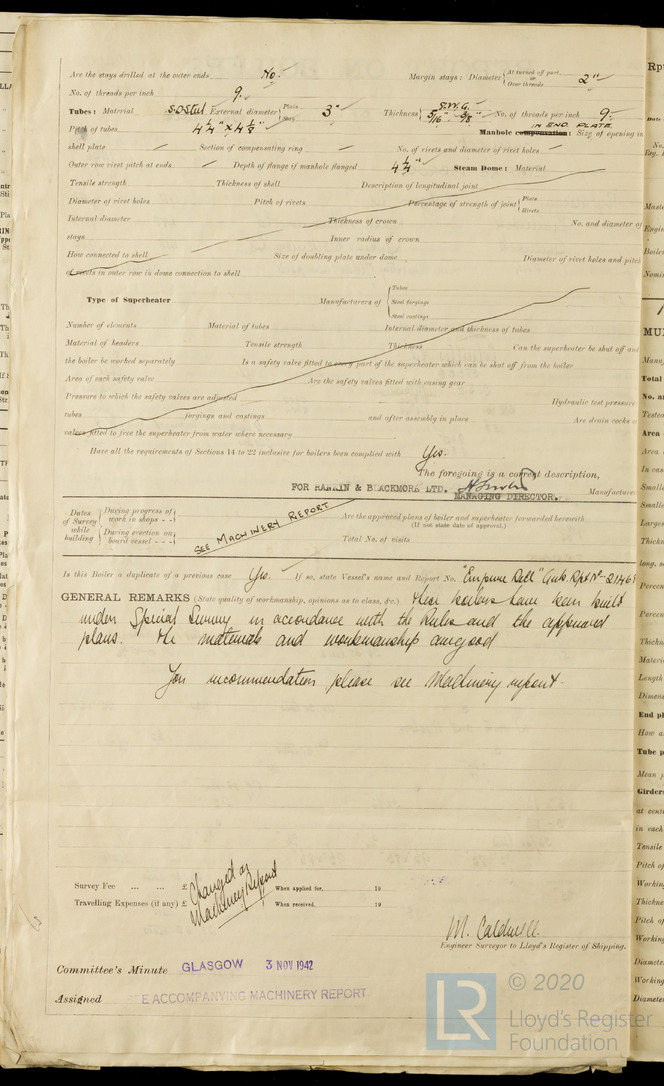 Are the stays drilled at the outer ends No. Margin stays: Diameter { At turned off part, or Over threads 2"
No. of threads per inch 9.
Tubes: Material S.D Steel External diameter { Plain Stay 3" Thickness { S.W.G. 5/16" 3/8" No. of threads per inch 9.
Pitch of tubes 4¼" x 4⅛" IN END PLATE. Manhole compensation: Size of opening in
shell plate Section of compensating ring No. of rivets and diameter of rivet holes
Outer row rivet pitch at ends Depth of flange if manhole flanged 4¼" Steam Dome: Material
Tensile strength Thickness of shell Description of longitudinal joint
Diameter of rivet holes Pitch of rivets Percentage of strength of joint { Plate Rivets
Internal diameter Thickness of crown No. and diameter of
stays Inner radius of crown
How connected to shell Size of doubling plate under dome Diameter of rivet holes and pitch
of rivets in outer row in dome connection to shell
Type of Superheater Manufacturers of { Tubes Steel forgings Steel castings
Number of elements Material of tubes Internal diameter and thickness of tubes
Material of headers Tensile strength Thickness Can the superheater be shut off and
the boiler be worked separately Is a safety valve fitted to every part of the superheater which can be shut off from the boiler
Area of each safety valve Are the safety valves fitted with easing gear
Pressure to which the safety valves are adjusted Hydraulic test pressure
tubes forgings and castings and after assembly in place Are drain cocks or
valves fitted to free the superheater from water where necessary
Have all the requirements of Sections 14 to 22 inclusive for boilers been complied with Yes.
The foregoing is a correct description,
FOR RANKIN & BLACKMORE LTD. Manufacturer
MANAGING DIRECTOR.
Dates of Survey while building { During progress of work in shops - - During erection on board vessel - - - SEE MACHINERY REPORT
Are the approved plans of boiler and superheater forwarded herewith
(If not state date of approval.)
Total No. of visits
Is this Boiler a duplicate of a previous case Yes. If so, state Vessel's name and Report No. "Empire Dell"
GENERAL REMARKS (State quality of workmanship, opinions as to class, &c.) These boilers have been built
under Special Survey in accordance with the Rules and the approved
plans. The materials and workmanship are good
For recommendation please see Machinery report.
Survey Fee ... ... £ When applied for, 19
Travelling Expenses (if any) £ When received, 19
Charged on Machinery Report
M. Caldwell.
Engineer Surveyor to Lloyd's Register of Shipping.
Committee's Minute GLASGOW 3 NOV 1942
Assigned E ACCOMPANYING MACHINERY REPORT
LR © 2020
Lloyd's Register
Foundation